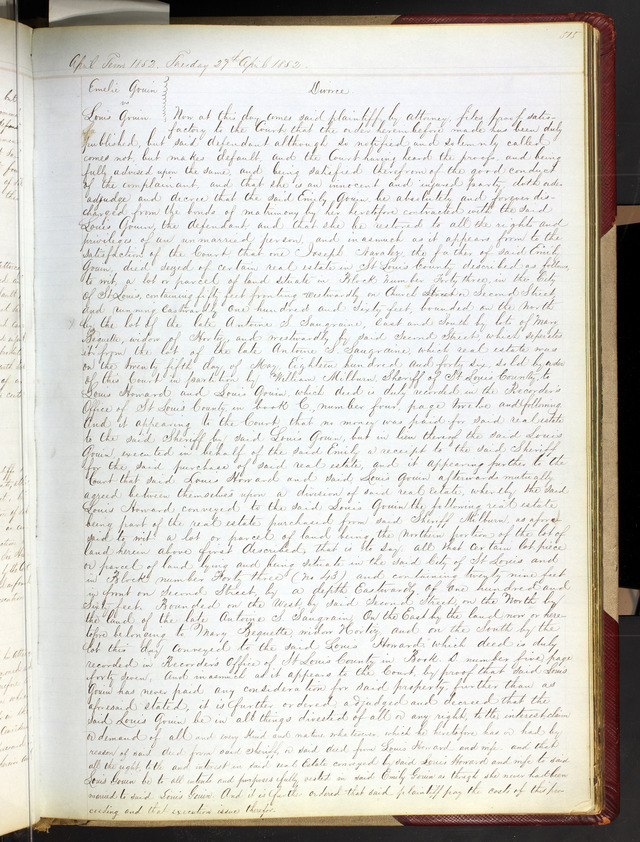 515
April Term 1852. Tuesday 27th April 1852.
Emelie Gouin
vs Divorce.
Louis Gouin. Now at this day comes said plaintiff by attorney, files proof satis-
factory to the Court that the order hereinbefore made has been duly
published, but said defendant although so notified and solemnly called
comes not, but makes default, and the Court having heard the proofs and being
fully advised upon the same, and being satisfied therefrom of the good conduct
of the complainant, and that she is an innocent and injured party doth order
adjudge and decree that the said Emily Gouin be absolutely and forever dis-
charged from the bonds of matrimony by her heretofore contracted with the said
Louis Gouin, the defendant, and that she be restored to all the rights and
privileges of an unmarried person, and inasmuch as it appears from to the
satisfaction of the Court that one Joseph the father of said Emily
Gouin, died seized of certain real estate in St Louis County described as follows,
to wit, a lot or parcel of land situate in Block number Forty three in the City
of St Louis, containing fifty feet fronting westwardly on Church Street or Second Street
and running Eastwardly One hundred and Sixty feet, bounded on the North
by the lot of the late Antoine S. Saugraine, East and South by lots of Mary
Bequette, widow of Hortiz and westwardly by said Second Street which separates
it from the lot of the late Antoine S. Saugraine which real estate was
on the twenty fifth day of May Eighteen hundred and forty six, sold by order
of this Court in partition by William Milburn Sheriff of St Louis County, to
Louis Howard and Louis Gouin, which deed is duly recorded in the Recorder's
Office of St Louis County in book C, number four, page twelve and following
And it appearing to the Court, that no money was paid for said real estate
to the said Sheriff by said Louis Gouin, but in lieu thereof the said Louis
Gouin, executed in behalf of the said Emily a receipt to the said Sheriff
for the said purchase of said real estate, and it appearing further to the
Court that said Louis Howard and said Louis Gouin afterwards mutually
agreed between themselves upon a division of said real estate, whereby the said
Louis Howard conveyed to the said Louis Gouin the following real estate
being part of the real estate purchased from said Sheriff Milburn, as afore-
said to wit a lot or parcel of land being the Northern portion of the lot of
land herein above first described, that is to say, all that certain lot piece
or parcel of land lying and being situate in the said City of St Louis and
in Block number Forty three (No 43), and containing twenty nine feet
in front on Second Street, by a depth Eastwardly of One hundred and
Sixty feet. Bounded on the West by said Second Street, on the North by
the land of the late Antoine S. Saugrain, On the East by the land now or here-
tofore belonging to Mary Bequette, widow Hortez, and on the South by the
lot this day conveyed to the said Louis Howard which deed is duly
recorded in Recorders Office of St Louis County in Book D number five, page
forty seven, And inasmuch as it appears to the Court, by proof that said Louis
Gouin has never paid any consideration for said property, further than as
aforesaid stated, it is further ordered adjudged and decreed that the
said Louis Gouin be in all things divested of all or any right, title interest claim
or demand of all and every kind and nature whatsoever, which he heretofore has or had by
reason of said deed from said Sheriff, or said deed from Louis Howard and wife, and that
all the right, title and interest in said real estate conveyed by said Louis Howard and wife to said
Louis Gouin be to all intents and purposes fully vested in said Emily Gouin as though she never had been
married to said Louis Gouin. And it is further ordered that said plaintiff pay the cost of this pro-
ceeding and that execution issue therefor.